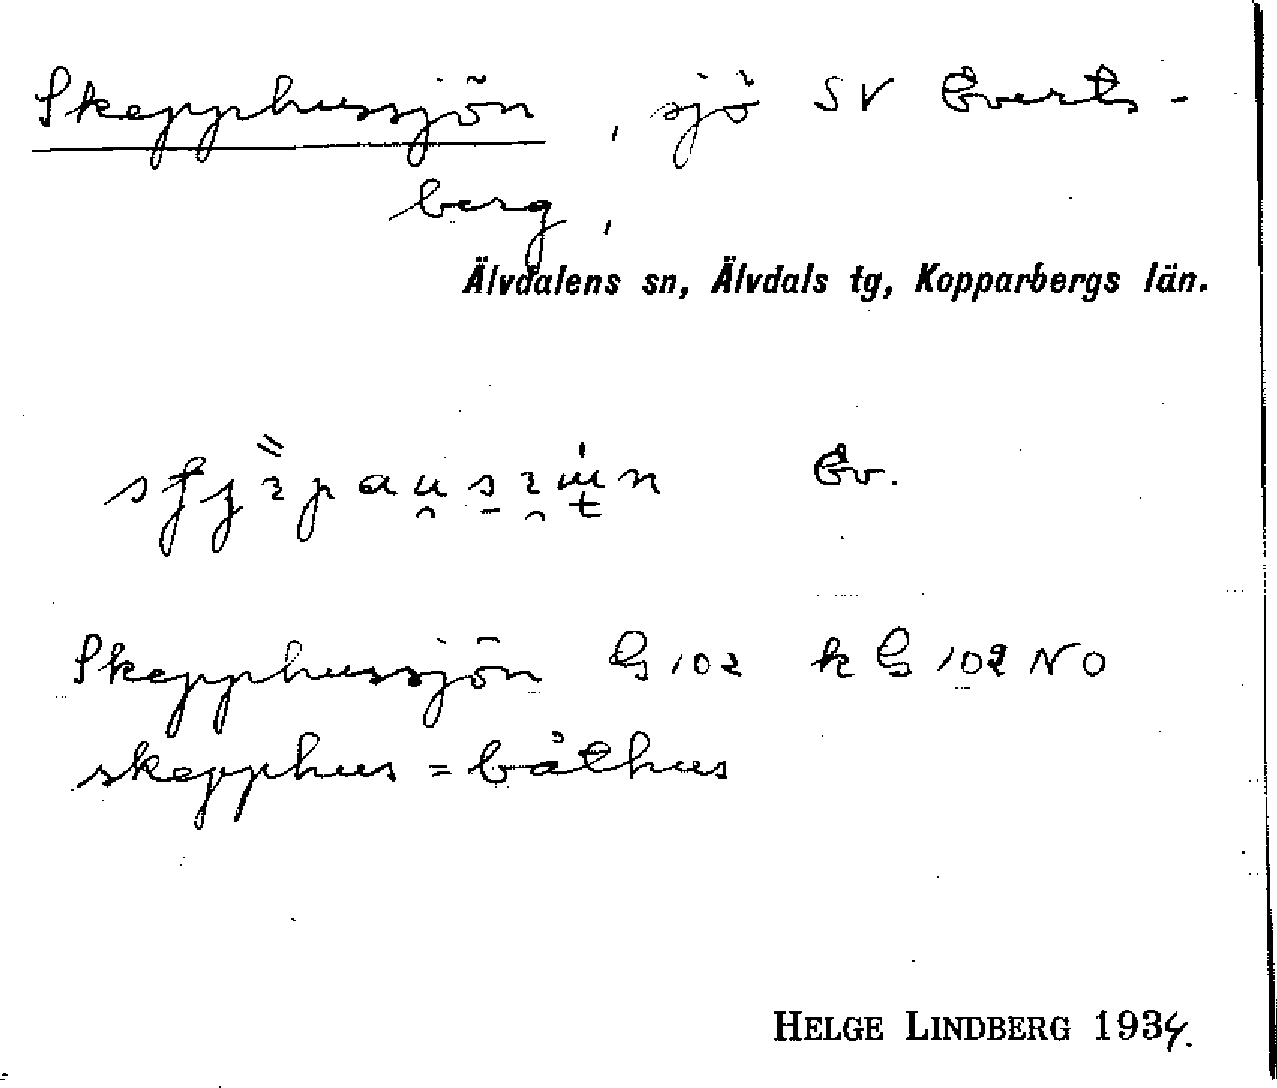 Skepphussjön, sjö SV Everts-
berg,
Älvdalens sn, Älvdals tg, Kopparbergs län.
Ev.
Skepphussjön G 102 k G 102 NO
skepphus = båthus
HELGE LINDBERG 1934.